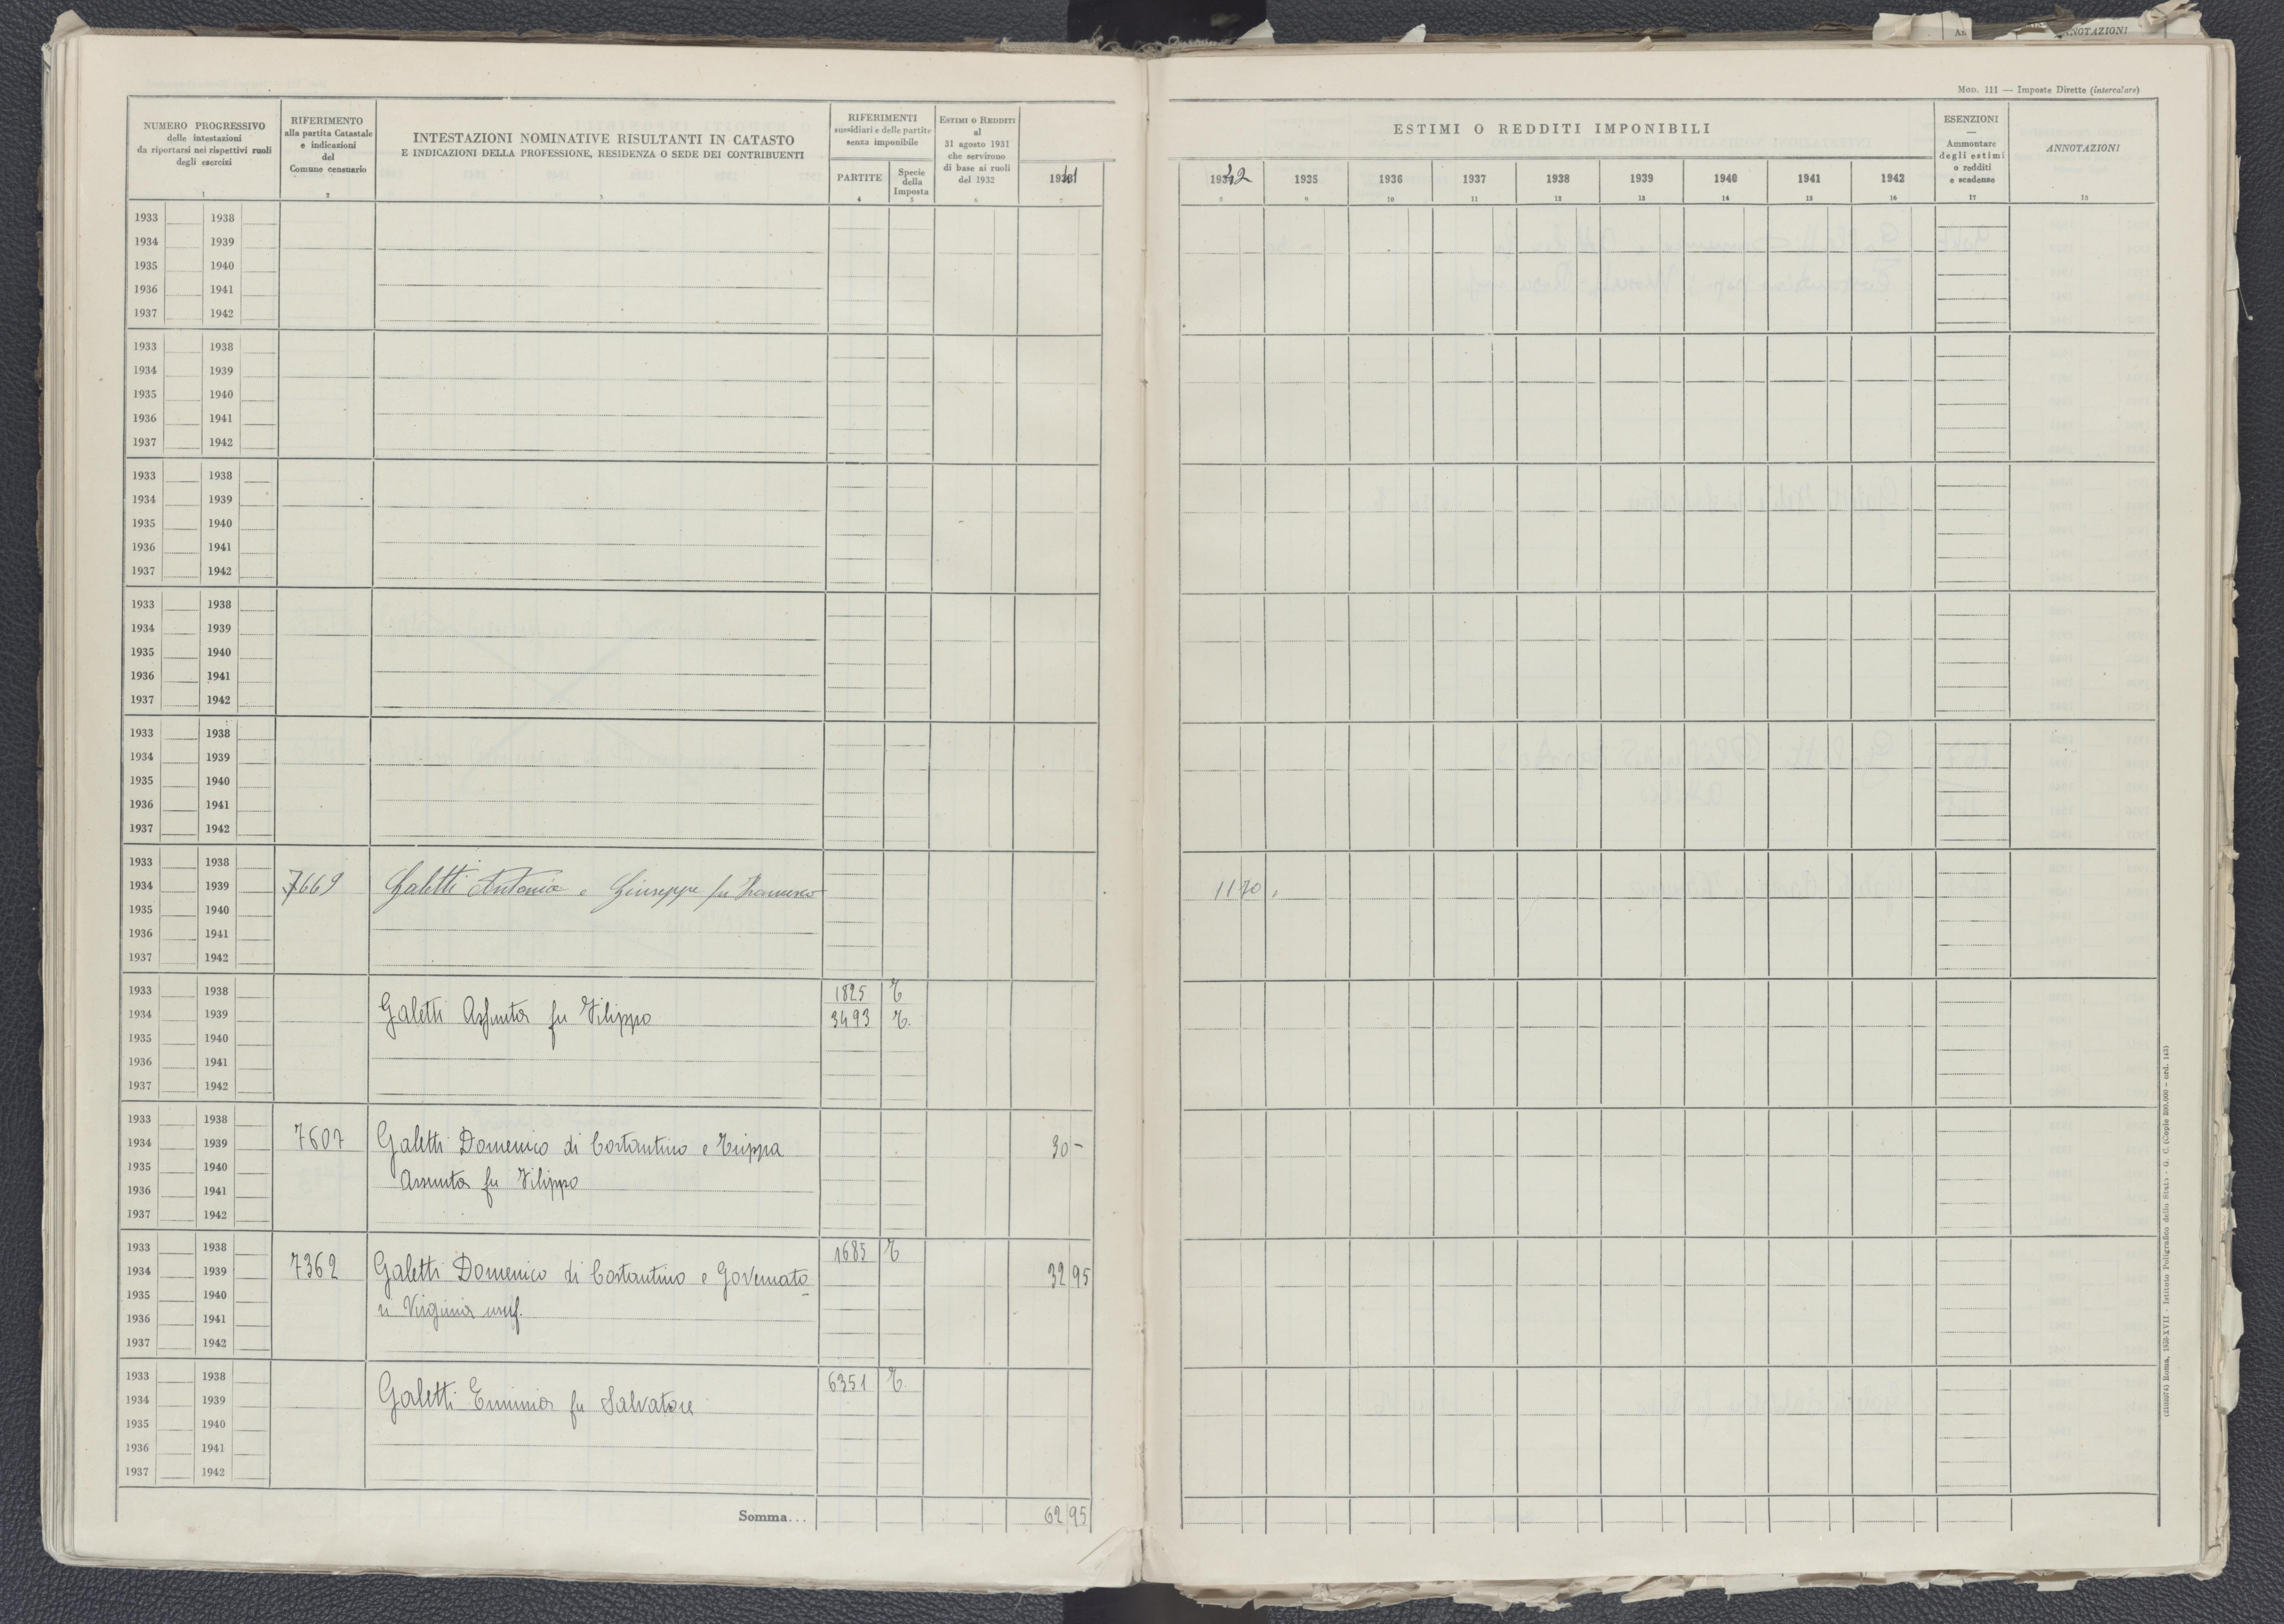 ANNOTAZIONI
Mod. 111 — Imposte Dirette (intercalare)
NUMERO PROGRESSIVO
delle intestazioni
da riportarsi nei rispettivi ruoli
degli esercizi
1
RIFERIMENTO
alla partita Catastale
e indicazioni
del
Comune censuario
2
INTESTAZIONI NOMINATIVE RISULTANTI IN CATASTO
E INDICAZIONI DELLA PROFESSIONE, RESIDENZA O SEDE DEI CONTRIBUENTI
3
RIFERIMENTI
sussidiari e delle partite
senza imponibile
PARTITE
4
Specie
della
Imposta
5
Estimi o Redditi
al
31 agosto 1931
che servirono
di base ai ruoli
del 1932
6
1941
7
ESTIMI O REDDITI IMPONIBILI
1942
8
1935
9
1936
10
1937
11
1938
12
1939
13
1940
14
1941
15
1942
16
ESENZIONI
—
Ammontare
degli estimi
o redditi
e scadenze
17
ANNOTAZIONI
18
1933 1938
1934 1939
1935 1940
1936 1941
1937 1942
1933 1938
1934 1939
1935 1940
1936 1941
1937 1942
1933 1938
1934 1939
1935 1940
1936 1941
1937 1942
1933 1938
1934 1939
1935 1940
1936 1941
1937 1942
1933 1938
1934 1939
1935 1940
1936 1941
1937 1942
1933 1938
1934 1939 7669 Galetti Antonio e Giuseppe fu Francesco 1170,
1935 1940
1936 1941
1937 1942
1933 1938 1825 T
1934 1939 Galetti Assunta fu Filippo 3493 T.
1935 1940
1936 1941
1937 1942
1933 1938
1934 1939 7607 Galetti Domenico di Costantino e Trippa 30 –
1935 1940
1936 1941 Assunta fu Filippo
1937 1942
1933 1938 1685 T
1934 1939 7362 Galetti Domenico di Costantino e Governato- 32 95
1935 1940
1936 1941 ri Virginia usuf.
1937 1942
1933 1938 6351 T.
1934 1939 Galetti Erminia fu Salvatore
1935 1940
1936 1941
1937 1942
Somma... 62 95
(2102074) Roma, 1938-XVII - Istituto Poligrafico dello Stato - G. C. (Copie 200.000 - ord. 143)